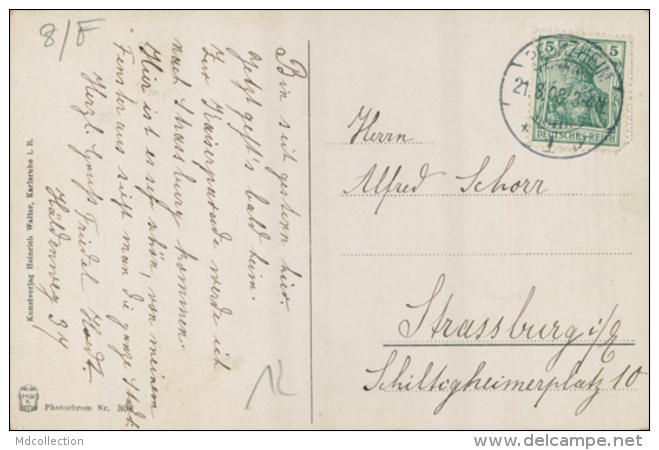 8/F
Bin seit gestern hier.
Jetzt geht's bald heim.
Zur Kaiserparade werde ich
nach Strassburg kommen.
Hier ist es sehr schön, von meinem
Fenster aus sieht man die ganze Stadt.
Herzl. Gruß Friedel
12
Kunstverlag Heinrich Walter, Karlsruhe i. B.
Photochrom Nr.
PFORZHEIM
21.8.08
5 5
DEUTSCHES REICH
Herrn
Alfred Schorr
Strassburg i/E
Schiltigheimerplatz 10
Mdcollection
www.delcampe.net